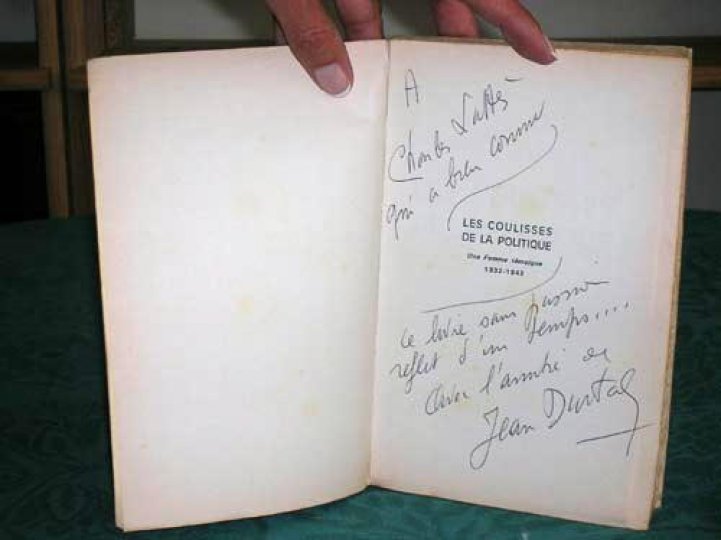 A
Charles Lattès
qui a bien connu
LES COULISSES
DE LA POLITIQUE
Une Femme témoigne
1932-1942
ce livre sans passion
reflet d'un temps....
Avec l'amitié de
Jean Durtal